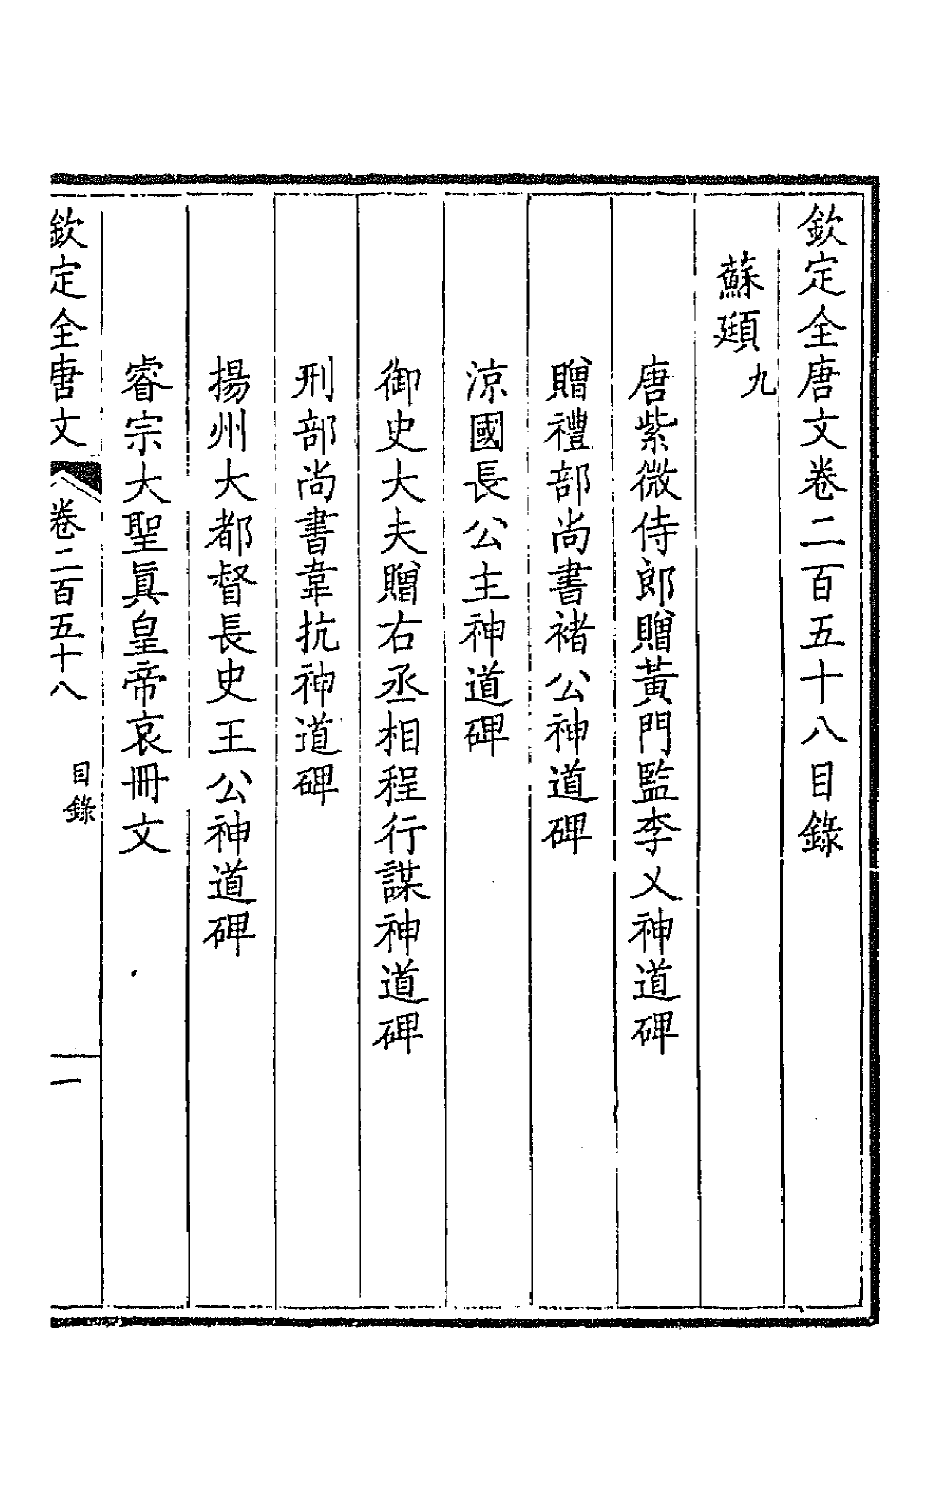 欽定全唐文卷二百五十八目錄
蘇頲九
唐紫微侍郎贈黃門監李乂神道碑
贈禮部尚書褚公神道碑
涼國長公主神道碑
御史大夫贈右丞相程行謀神道碑
刑部尚書韋抗神道碑
揚州大都督長史王公神道碑
睿宗大聖眞皇帝哀冊文
欽定全唐文 卷二百五十八 目錄 一